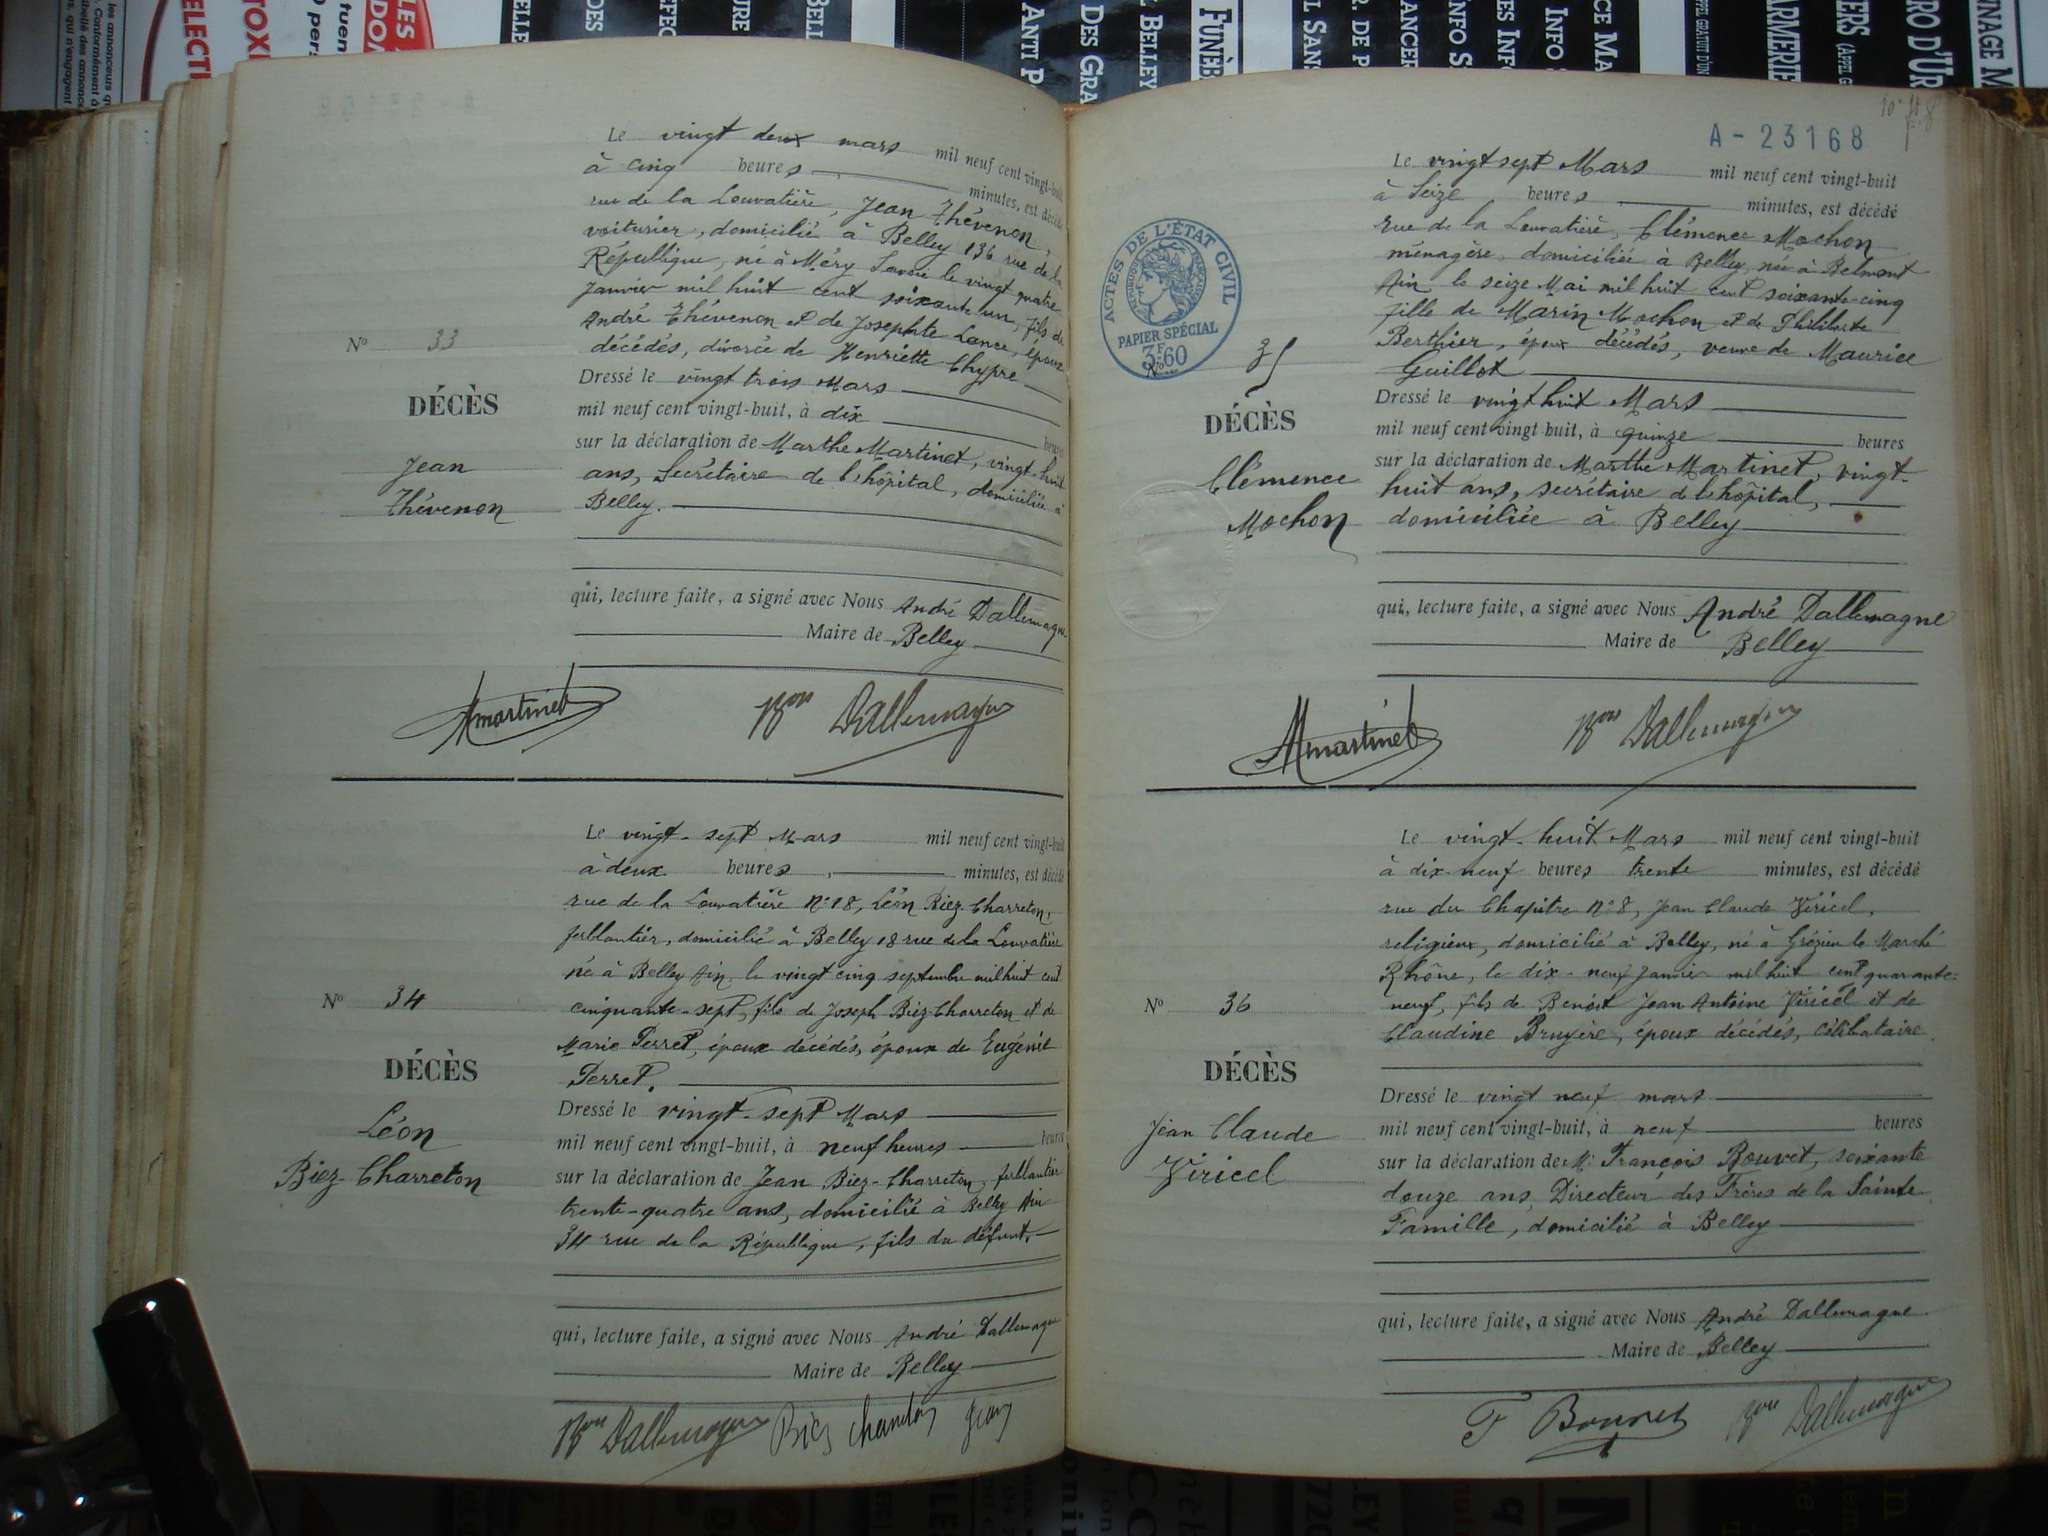 Le vingt deux mars mil neuf cent vingt-huit
à cinq heures minutes, est décédé
rue de la Louvatière, Jean Thévenon,
voiturier, domicilié à Belley 136 rue de la
République, né à Méry Savoie le vingt quatre
janvier mil huit cent soixante un, fils de
André Thévenon et de Josephte Lance, époux
décédés, divorcé de Henriette Chypre
Dressé le vingt trois Mars
mil neuf cent vingt-huit, à dix heures
sur la déclaration de Marthe Martinet, vingt-huit
ans, Secrétaire de l'hôpital, domiciliée à
Belley.
qui, lecture faite, a signé avec Nous André Dallemagne
Maire de Belley
N° 33
DÉCÈS
Jean
Thévenon
Mmartinet Bon Dallemagne
Le vingt-sept Mars mil neuf cent vingt-huit
à deux heures, minutes, est décédé
rue de la Louvatière N° 18, Léon Biez-Charreton,
ferblantier, domicilié à Belley 18 rue de la Louvatière
né à Belley Ain, le vingt cinq septembre mil huit cent
cinquante-sept, fils de Joseph Biez-Charreton et de
Marie Perret, époux décédés, époux de Eugénie
Perret.
Dressé le vingt-sept Mars
mil neuf cent vingt-huit, à neuf heures heures
sur la déclaration de Jean Biez-Charreton, ferblantier
trente-quatre ans, domicilié à Belley Ain
34 rue de la République, fils du défunt,
qui, lecture faite, a signé avec Nous André Dallemagne
Maire de Belley
N° 34
DÉCÈS
Léon
Biez-Charreton
Bon Dallemagne Biez charreton Jean
A-23168
Le vingt sept Mars mil neuf cent vingt-huit
à Seize heures minutes, est décédé
rue de la Louvatière, Clémence Mochon
ménagère, domiciliée à Belley, née à Belmont
Ain le seize Mai mil huit cent soixante-cinq
fille de Marin Mochon et de Philiberte
Berthier, époux décédés, veuve de Maurice
Guillot
Dressé le vingt huit Mars
mil neuf cent vingt-huit, à quinze heures
sur la déclaration de Marthe Martinet, vingt-
huit ans, secrétaire de l'hôpital,
domiciliée à Belley
qui, lecture faite, a signé avec Nous André Dallemagne
Maire de Belley
ACTES DE L'ÉTAT CIVIL
RÉPUBLIQUE FRANÇAISE
PAPIER SPÉCIAL
3F60
N° 35
DÉCÈS
Clémence
Mochon
Mmartinet Bon Dallemagne
Le vingt-huit Mars mil neuf cent vingt-huit
à dix-neuf heures trente minutes, est décédé
rue du Chapitre N° 8, Jean Claude Viricel,
religieux, domicilié à Belley, né à Grézieu le Marché
Rhône, le dix-neuf Janvier mil huit cent quarante-
neuf, fils de Benoit Jean Antoine Viricel et de
Claudine Bruyère, époux décédés, célibataire.
Dressé le vingt neuf mars
mil neuf cent vingt-huit, à neuf heures
sur la déclaration de Mr François Bouvet, soixante
douze ans, Directeur des Frères de la Sainte
Famille, domicilié à Belley
qui, lecture faite, a signé avec Nous André Dallemagne
Maire de Belley
N° 36
DÉCÈS
Jean Claude
Viricel
F Bouvet Bon Dallemagne